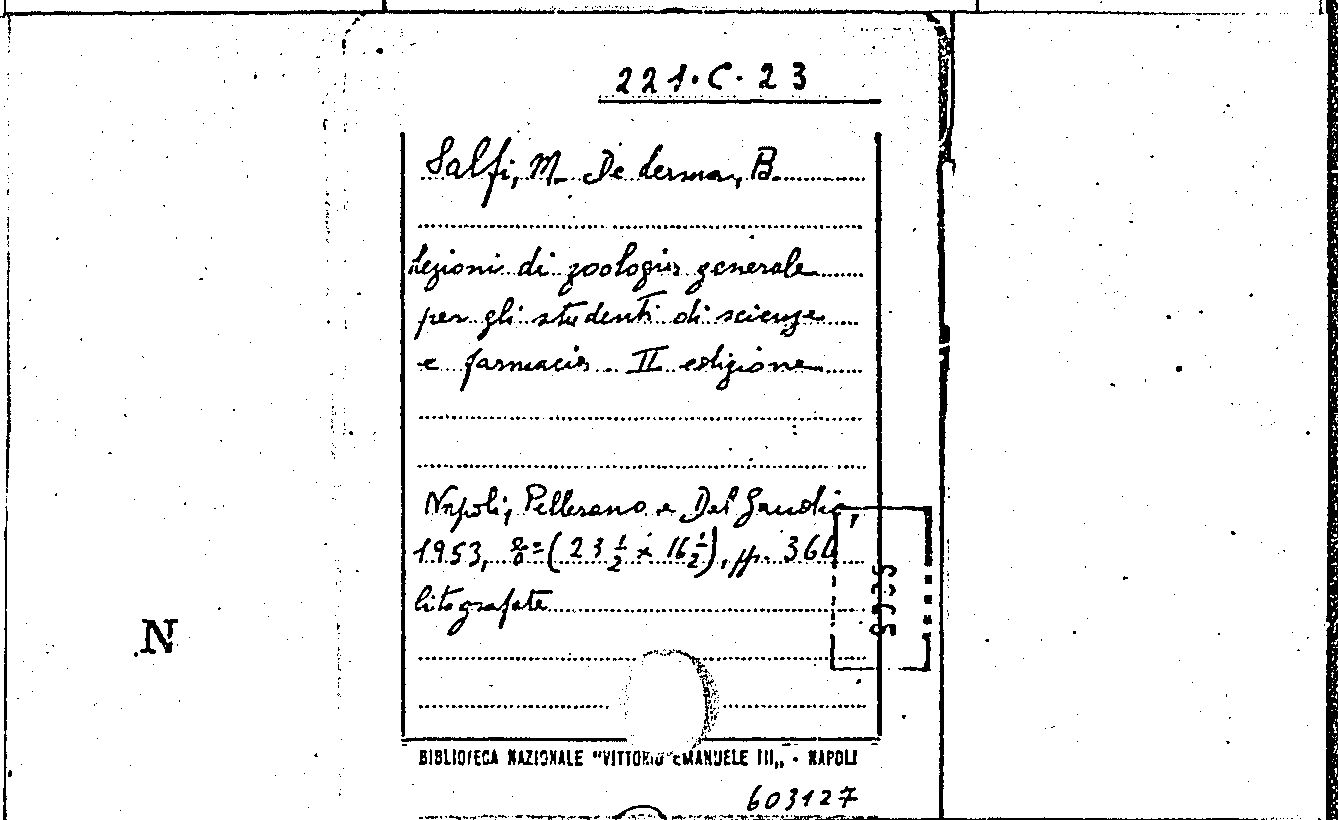 221.C.23
Salfi, M. De Lerma, B.
Lezioni di zoologia generale
per gli studenti di scienze
e farmacia. II edizione
Napoli, Pellerano e Del Gaudio,
1953, 8°=(23 ½ x 16 ½), pp. 360
litografate
N
BIBLIOTECA NAZIONALE "VITTORIO EMANUELE III„ - NAPOLI
603127